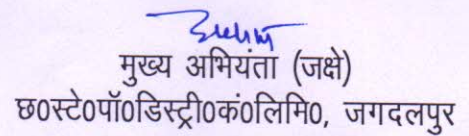 मुख्य अभियंता (जक्षे)
छ0स्टे0पॉ0डिस्ट्री0कं0लिमि0, जगदलपुर